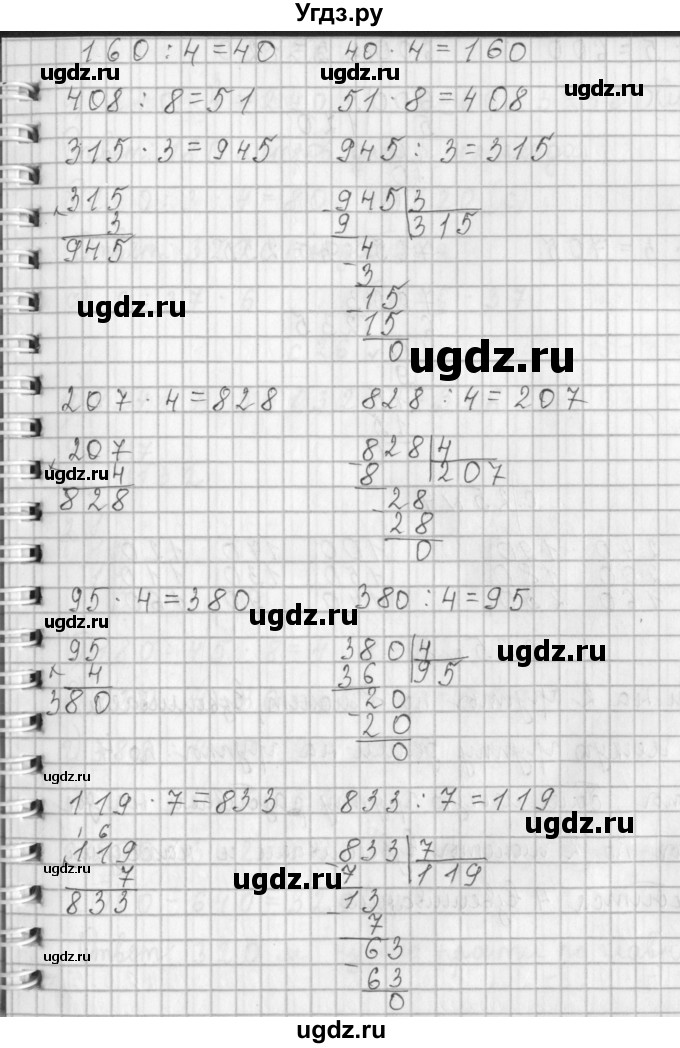 Угдз.ру
160 : 4 = 40    40 · 4 = 160
ugdz.ru    ugdz.ru    ugdz.ru
408 : 8 = 51    51 · 8 = 408
315 · 3 = 945    945 : 3 = 315
×315    -945|3
3    9    315
945    -4
3
ugdz.ru    -15
15
0
ugdz.ru
207 · 4 = 828    828 : 4 = 207
ugdz.ru
×207    -828|4
4    8    207
ugdz.ru    ugdz.ru
828    -28
28
0
95 · 4 = 380    380 : 4 = 95
ugdz.ru    ugdz.ru
×95    -380|4
4    36    95
ugdz.ru
380    -20
20
0
ugdz.ru
119 · 7 = 833    833 : 7 = 119
ugdz.ru    ugdz.ru
1 6
×119    -833|7
7    7    119
ugdz.ru    ugdz.ru
833    -13
7
-63
ugdz.ru
63
0
ugdz.ru